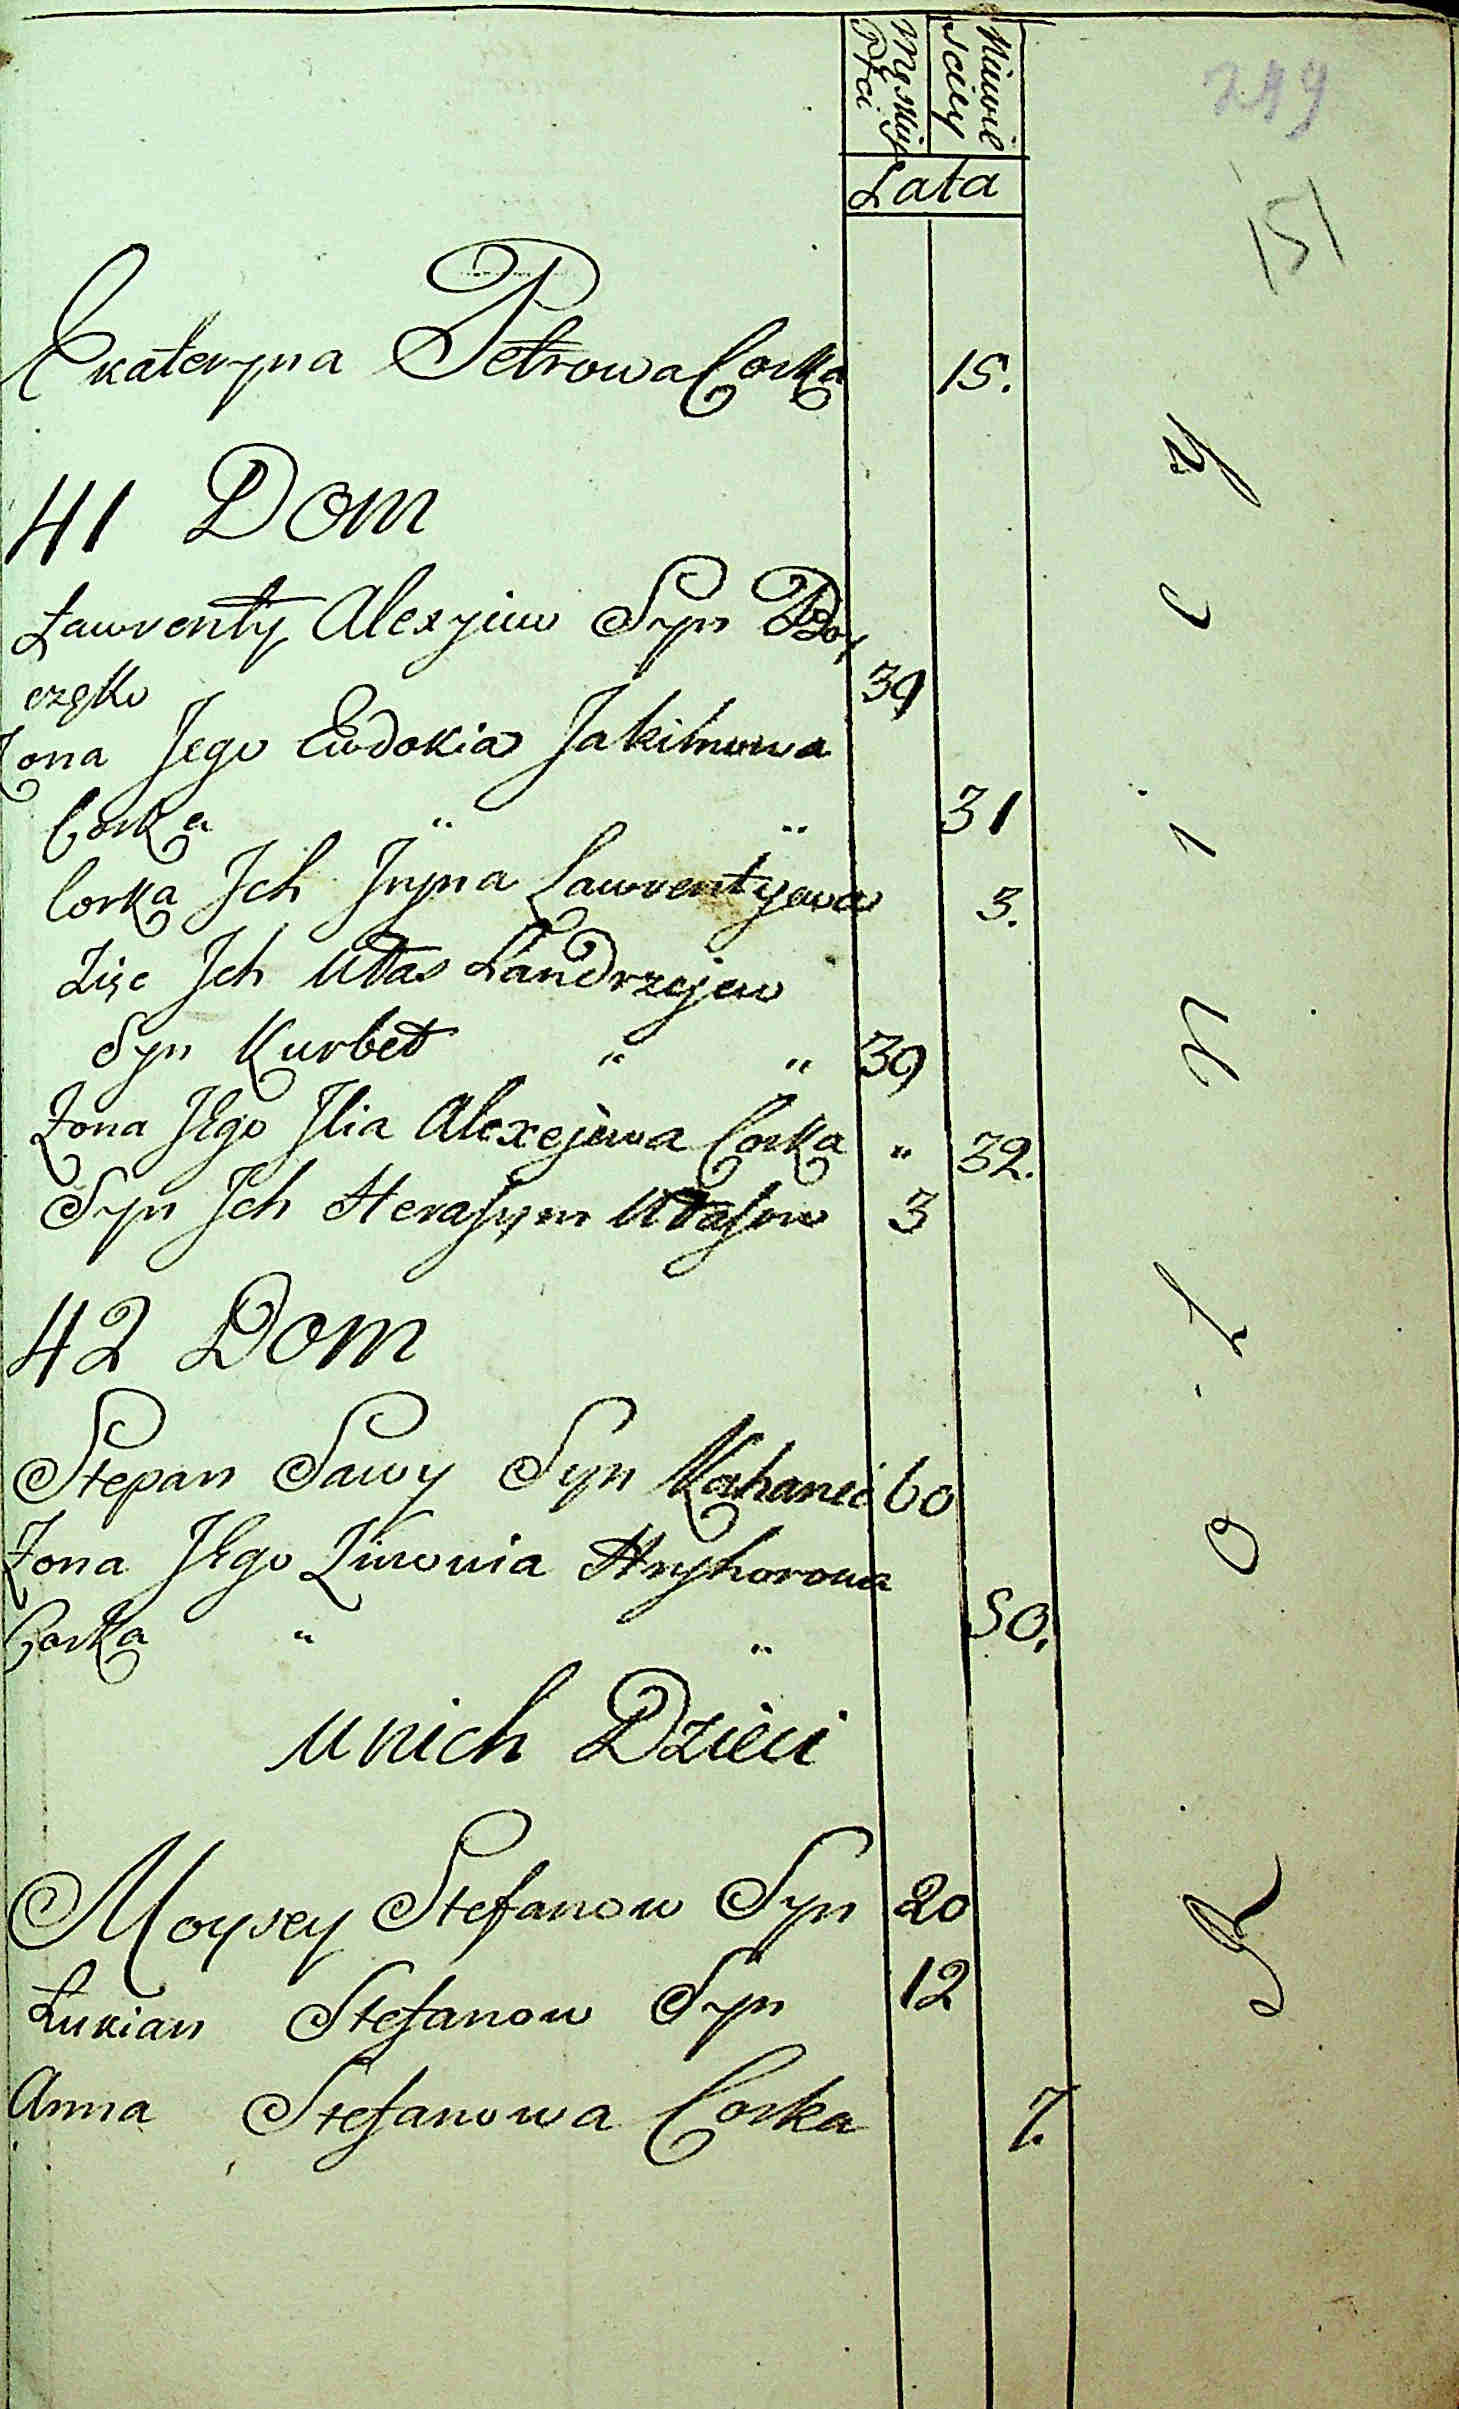 Męskiey Płci
Niewie sciey
Lata
249
151
Ekateryna Petrowa Corka 15.
41 Dom
Ławrenty Alexyiew Syn
39
Zona Jego Ewdokia Jakimowa
Corka " " 31
Corka Jch Jryna Lawrentyewa 3.
Zięc Jch Ułas Landrzejew
Syn Kurbet " " 39
Zona JEgo Jlia Alexejewa Corka " 32.
Syn Jch Herasym Ułasow 3
42 Dom
Stepan Sawy Syn Kahanec 60
Zona JEgo Zinowia Hryhorowa
Corka " " 50.
u nich Dzieci
Moysey Stefanow Syn 20
Łukian Stefanow Syn 12
Anna Stefanowa Corka 7.
R o l n i c y